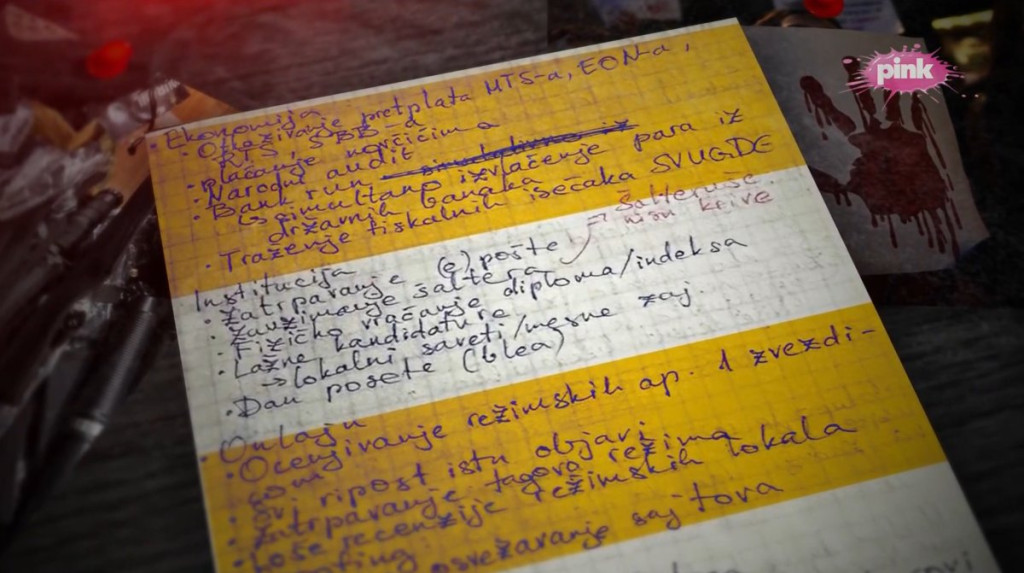 pink
• Ekonomija
• Otkazivanje pretplata MTS-a, EON-a,
RTS, SBB-a
• Plaćanje novčićima
• Narodni audit
• Bank run
↳ simultano izvlačenje para iz
državnih banaka
• Traženje fiskalnih isečaka SVUGDE
Šalteruše
nisu krive
Institucija
• Zatrpavanje (e)pošte
• Zauzimanje šaltera
• Fizičko vraćanje diploma/indeksa
• Lažne kandidature
→ lokalni saveti/mesne zaj.
• Dan posete (blea)
• Onlajn
• Ocenjivanje režimskih ap. 1 zvezdi-
com
• Svi ripost istu objavi
• Zatrpavanje tagova režima
• Loše recenzije režimskih lokala
osvežavanje saj-tova